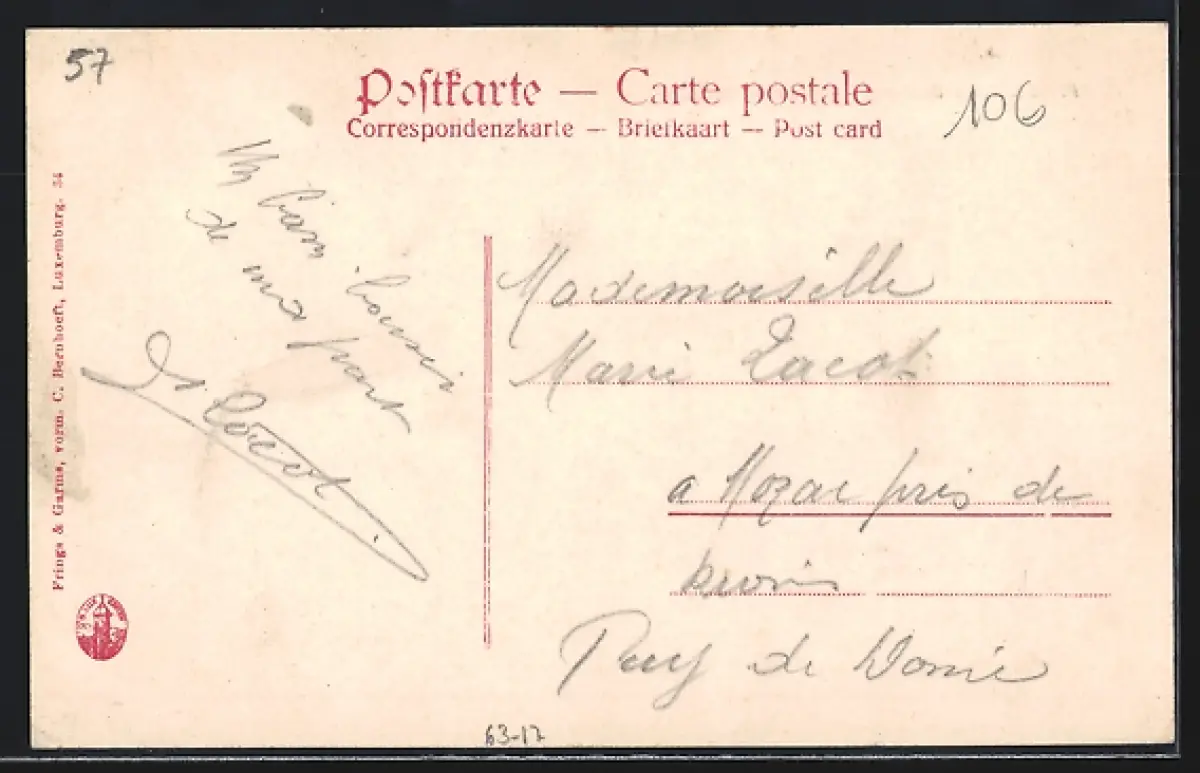 57
Postkarte — Carte postale
Correspondenzkarte — Briefkaart — Post card
106
de ma part
Mademoiselle
Marie
a Mozac près de
Riom
Puy de Dome
Frings & Garms, vorm. C. Bernhoeft, Luxemburg. 34
63-17